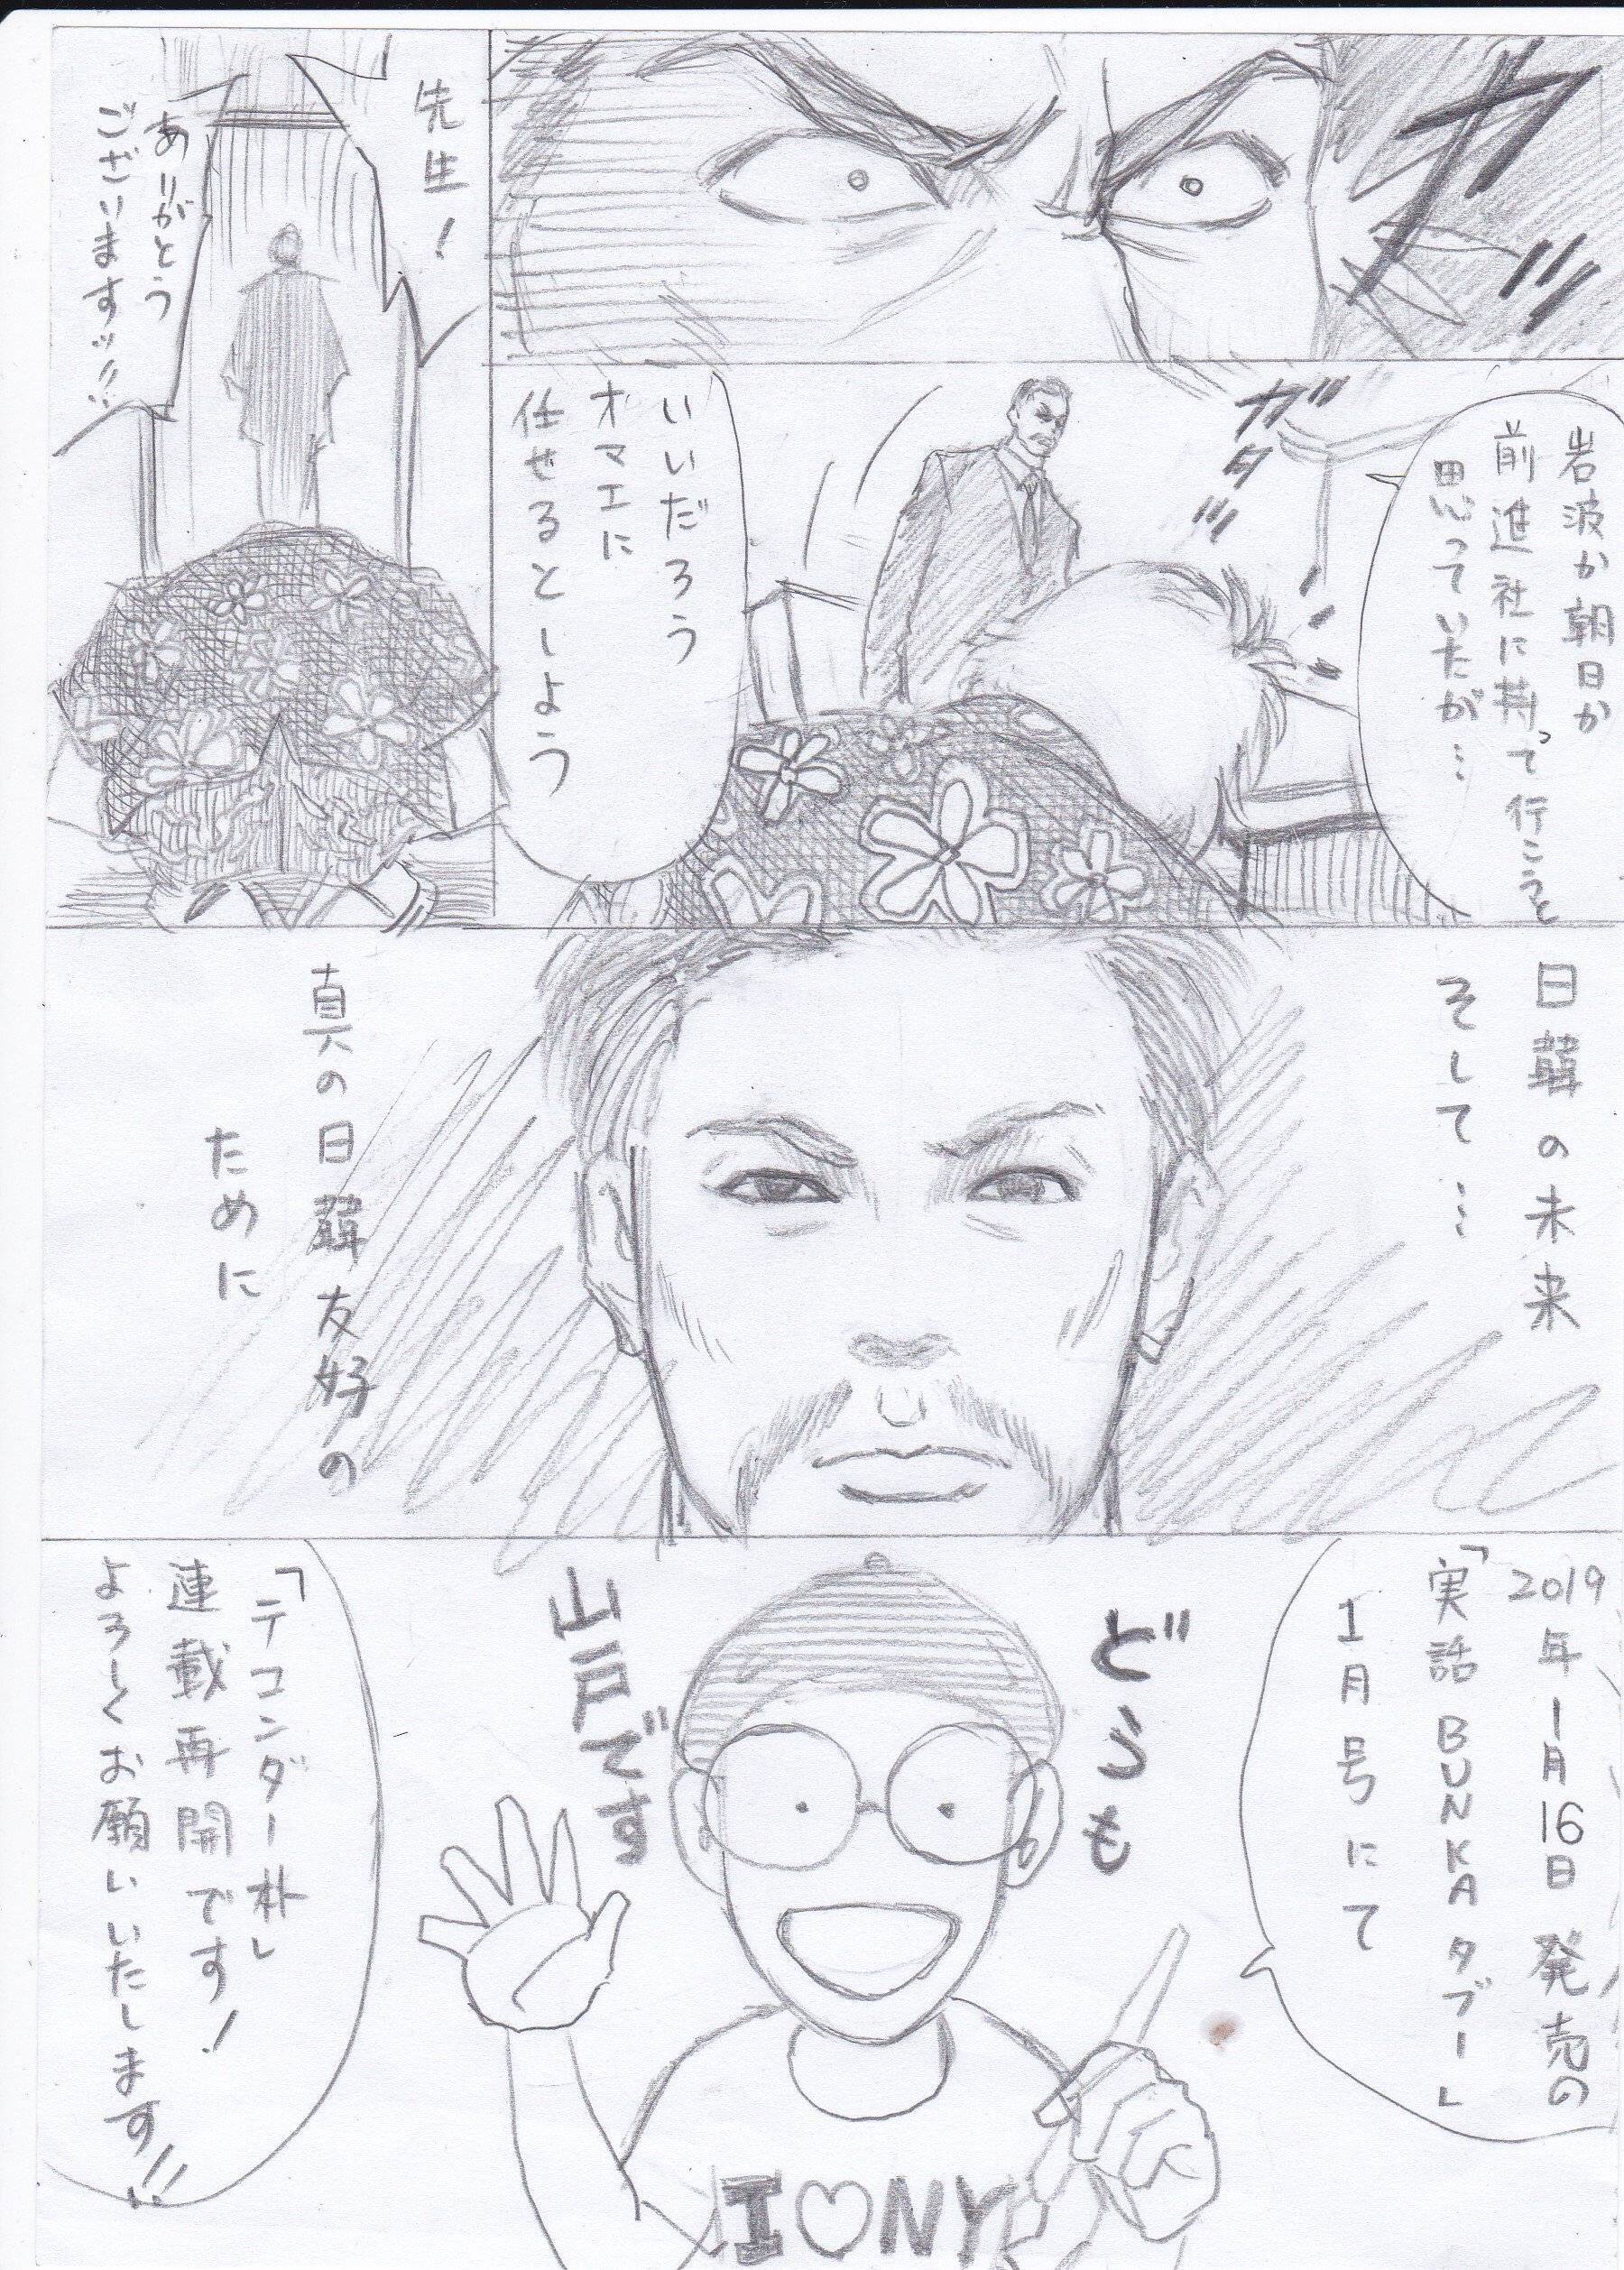 カッ
岩波か朝日か
前進社に持って行こうと
思っていたが…
ガタッ
いいだろう
オマエに
任せるとしよう
先生！
ありがとう
ございますッ!!
日韓の未来
そして…
真の日韓友好の
ために
2019年1月16日発売の
「実話BUNKAタブー」
1月号にて
どうも
山戸です
I♡NY
「テコンダー朴」
連載再開です！
よろしくお願いいたします!!